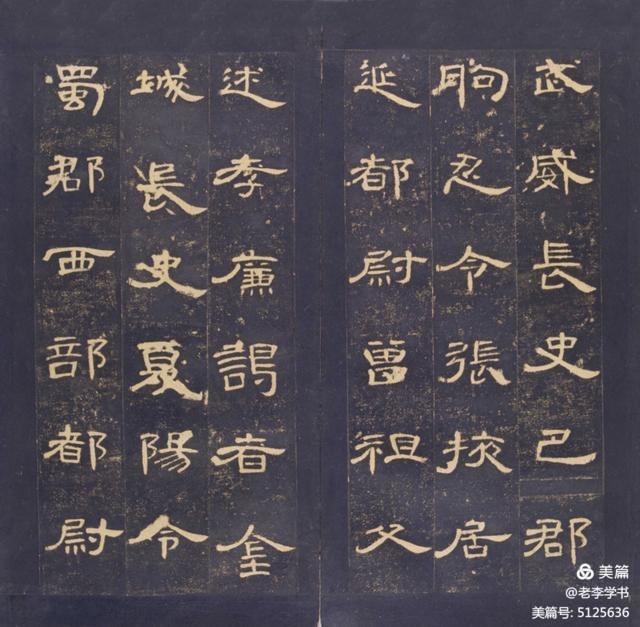 武威長史巴郡
朐忍令張掖居
延都尉曾祖父
述孝廉謁者金
城長史夏陽令
蜀郡西部都尉
美篇
@老李学书
美篇号: 5125636